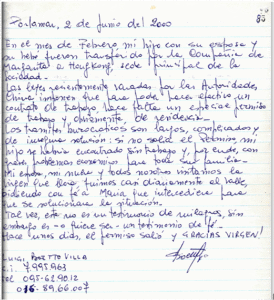 Porlamar, 2 de junio del 2000
En el mes de Febrero, mi hijo con su esposa y
su bebé fueron transferidos por la Compañía de
Margarita a Hong Kong, sede principal de la
sociedad.
Las leyes recientemente por las Autoridades
Chinas imponen que para poder hacer efectivo un
contrato de trabajo hace falta un especial permiso
de trabajo y obviamente de residencia.
Los tramites burocraticos son largos, complicados y
de solución: si no salía el permiso mi
hijo se podría encontrar sin trabajo y, sin duda, con
problemas económicos para toda su familia.
Mi esposa, mi nuera y todos nosotros visitamos la
Virgen que llora, fuimos casi diariamente al Valle,
pidiendo con fé a Maria que intercediera para
que se solucionara la situación.
Tal vez, este no es un testimonio de milagros, sin
embargo es - quiere ser - un testimonio de fé.
Hace unos días, el permiso salió y GRACIAS VIRGEN!
LUIGI VILLA
C.I. 7.995.963
Tel 095-61.90.12
016-89.66.007